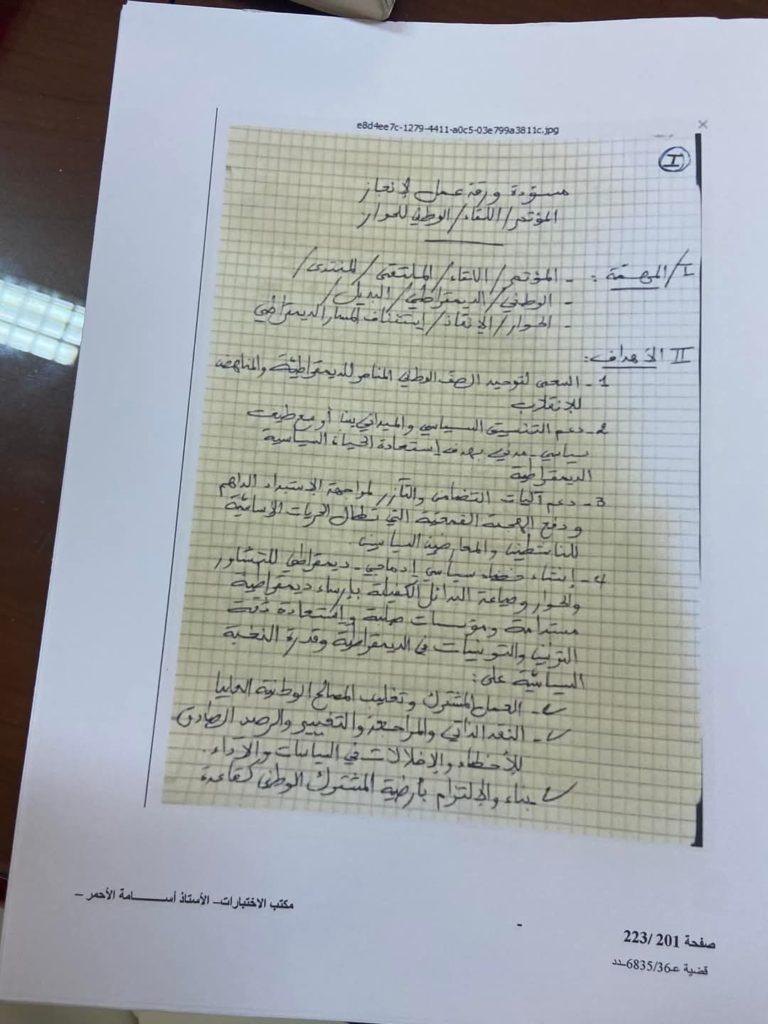 e8d4ee7c-1279-4411-a0c5-03e799a3811c.jpg
I
مسودة ورقة عمل لإنجاز
المؤتمر/اللقاء/الوطني للحوار
I/المهمة: - المؤتمر/اللقاء/الملتقى/المنتدى/
- الوطني/الديمقراطي/البديل/
- الحوار/الإنقاذ/إستئناف المسار الديمقراطي
II الأهداف:
1- السعي لتوحيد الصف الوطني المناصر للديمقراطية والمناهض
للإنقلاب
2- دعم التنسيق السياسي والميداني بين أوسع طيف
سياسي - مدني بهدف إستعادة الحياة السياسية
الديمقراطية
3- دعم آليات التضامن والتآزر لمواجهة الإستبداد الداهم
ودفع الهجمة القمعية التي تطال الحريات الأساسية
للناشطين والمعارضين السياسيين
4- إنشاء فضاء سياسي إدماجي - ديمقراطي للتشاور
والحوار وصياغة البدائل الكفيلة بإرساء ديمقراطية
مستدامة ومؤسسات صلبة وإستعادة ثقة
التونسيين والتونسيات في الديمقراطية وقدرة النخبة
السياسية على:
- العمل المشترك وتغليب المصالح الوطنية العليا
- النقد الذاتي والمراجعة والتغيير والرصد الصادق
للأخطاء والإخلالات في السياسات والآداء.
- بناء والإلتزام بأرضية المشترك الوطني كقاعدة
مكتب الاختبارات– الأستاذ أســـامة الأحمر –
صفحة 201/ 223
قضية عـ6835/36ـدد